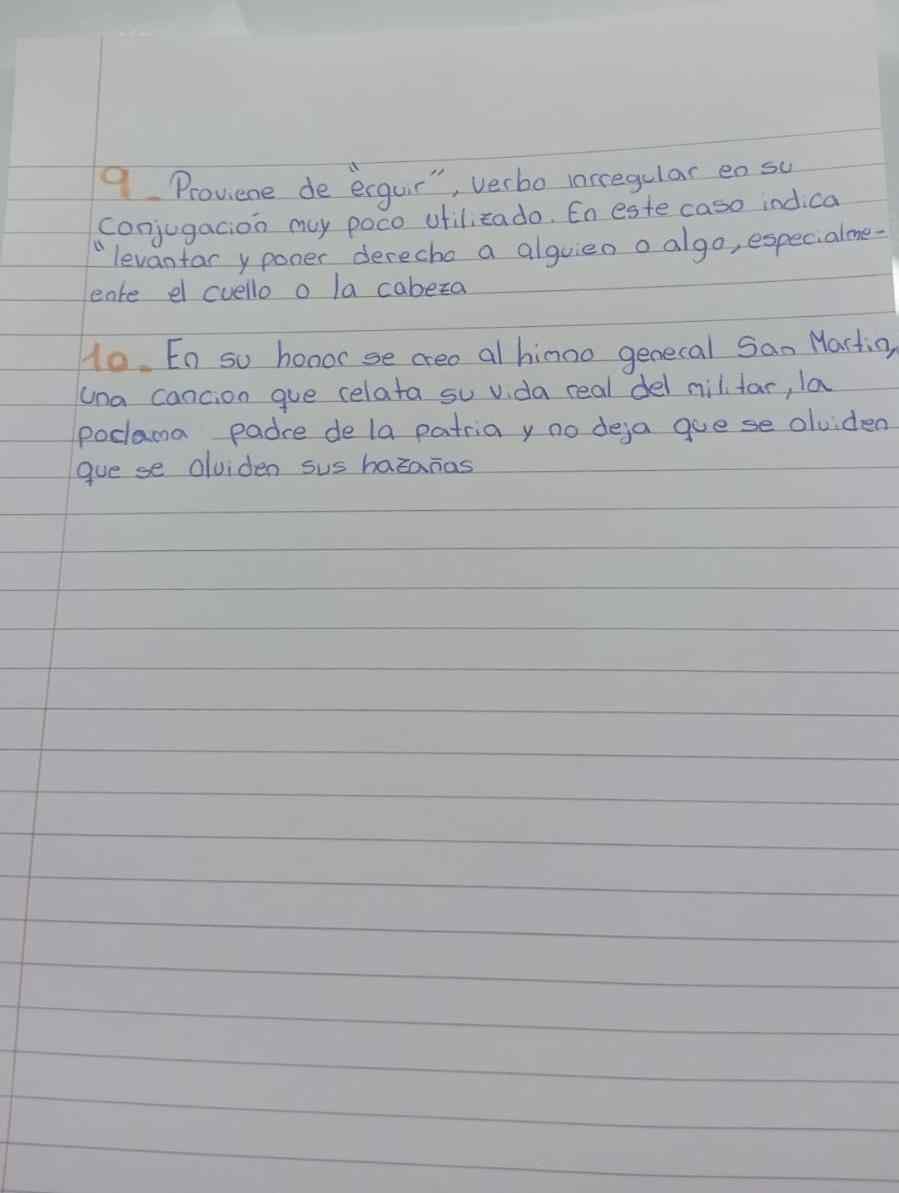 9_ Proviene de "erguir", verbo irregular en su
conjugación muy poco utilizado. En este caso indica
"levantar y poner derecho a alguien o algo, especialme-
ente el cuello o la cabeza
10_ En su honor se creo al himno general San Martin,
una cancion que relata su vida real del militar, la
poclama padre de la patria y no deja que se olviden
que se olviden sus hazañas